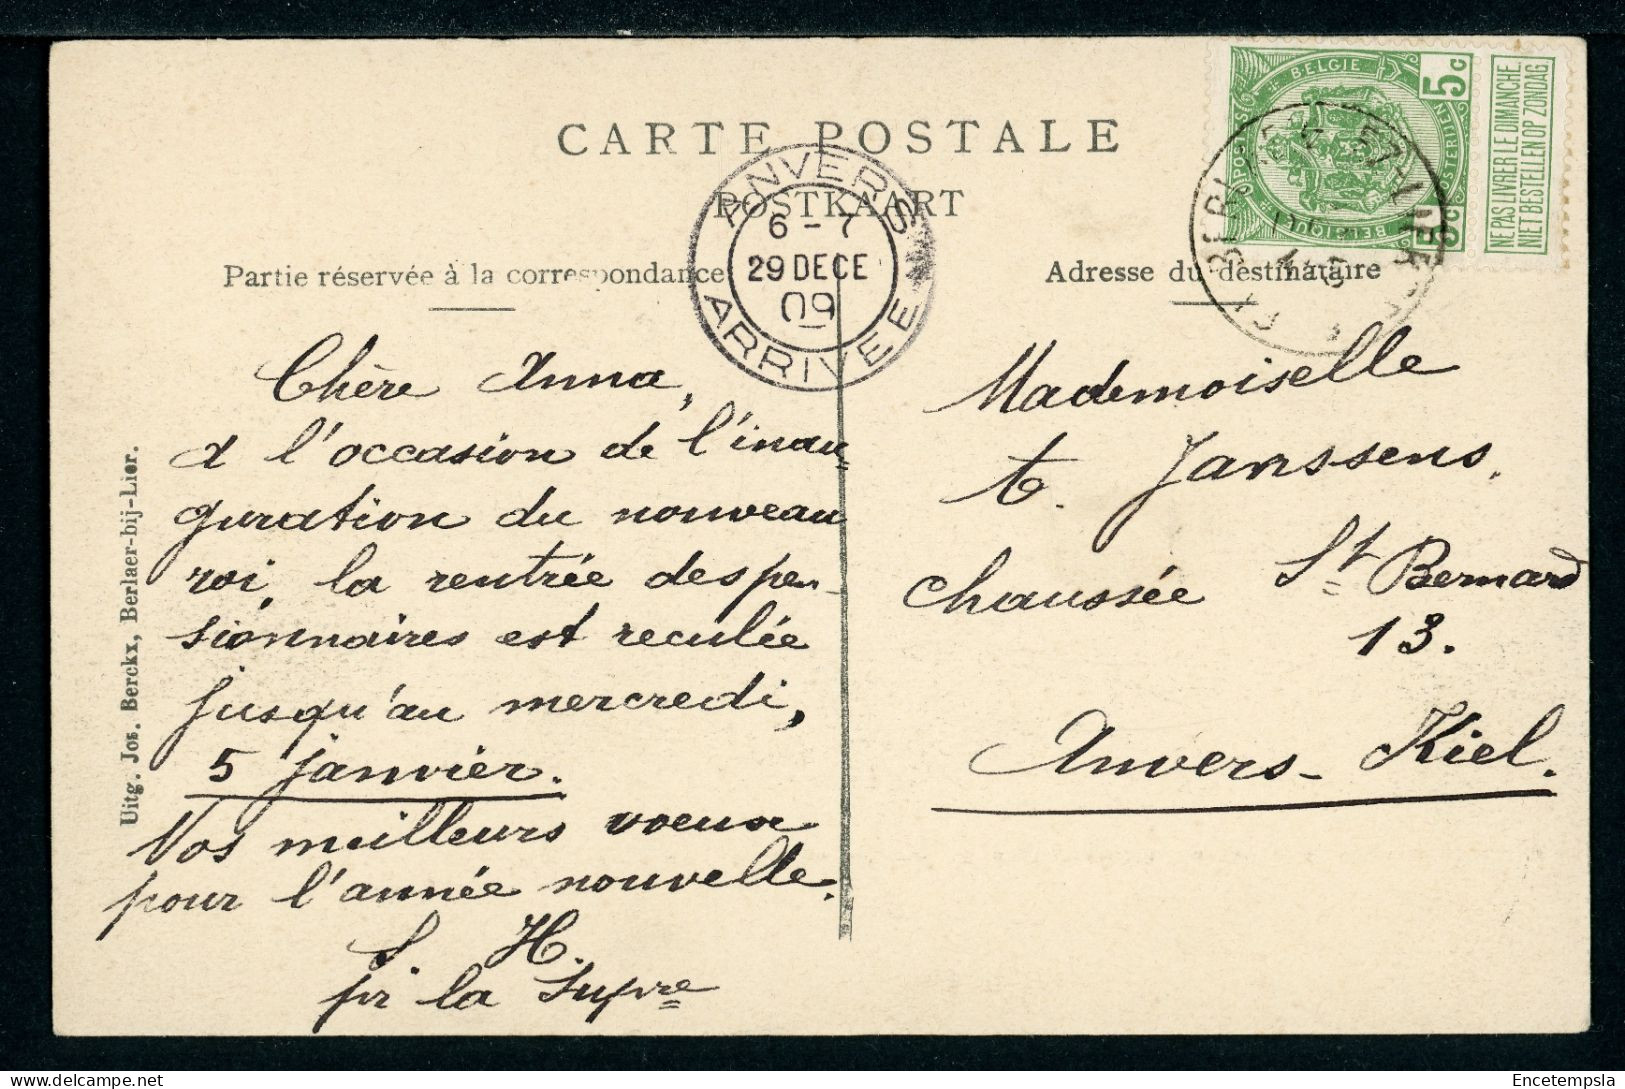 CARTE POSTALE
POSTKAART
Partie réservée à la correspondance
Adresse du destinataire
ANVERS
6-7
29 DECE
09
ARRIVEE
BELGIE
5c
5c
BELGIQUE
NE PAS LIVRER LE DIMANCHE
NIET BESTELLEN OP ZONDAG
Chère Anna,
A l'occasion de l'inau
guration du nouveau
roi, la rentrée des pen-
sionnaires est reculée
jusqu'au mercredi,
5 janvier.
Nos meilleurs voeux
pour l'année nouvelle.
S H.
pr la Supre
Mademoiselle
t. Janssens.
chaussée St Bernard
13.
Anvers-Kiel.
Uitg. Jos. Berckx, Berlaer-bij-Lier.
Encetempsla